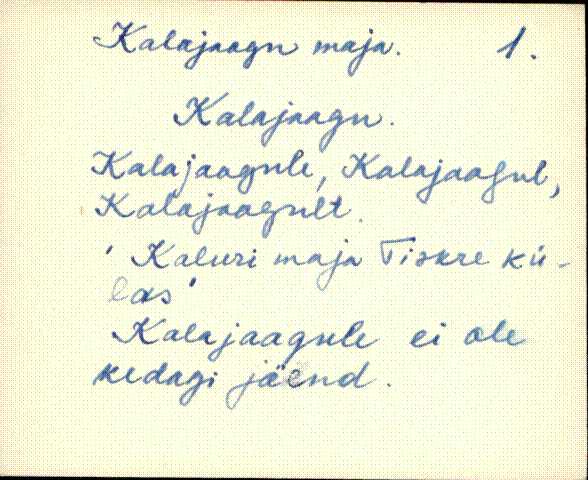 Kalajaagu maja. 1.
Kalajaagu.
Kalajaagule, Kalajaagul,
Kalajaagult.
' Kaluri maja Tiskre kü-
las'
Kalajaagule ei ole
kedagi jäend.